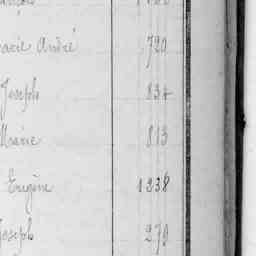 Marie André 720
Joseph 834
Marie 813
Eugène 1238
Joseph 279